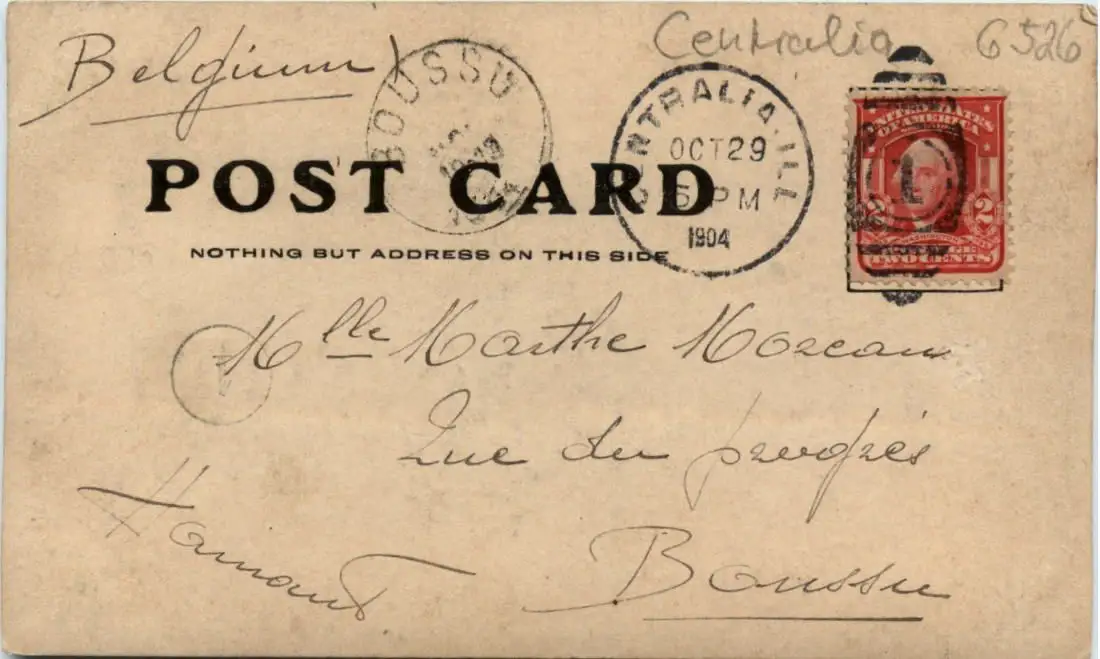 Centralia 6526
Belgium
BOUSSU
CENTRALIA. ILL
OCT 29
5 PM
1904
UNITED STATES
OF AMERICA
2 2
TWO CENTS
1
POST CARD
NOTHING BUT ADDRESS ON THIS SIDE
Mlle Marthe Moreau
Rue du progrès
Boussu
Hainaut